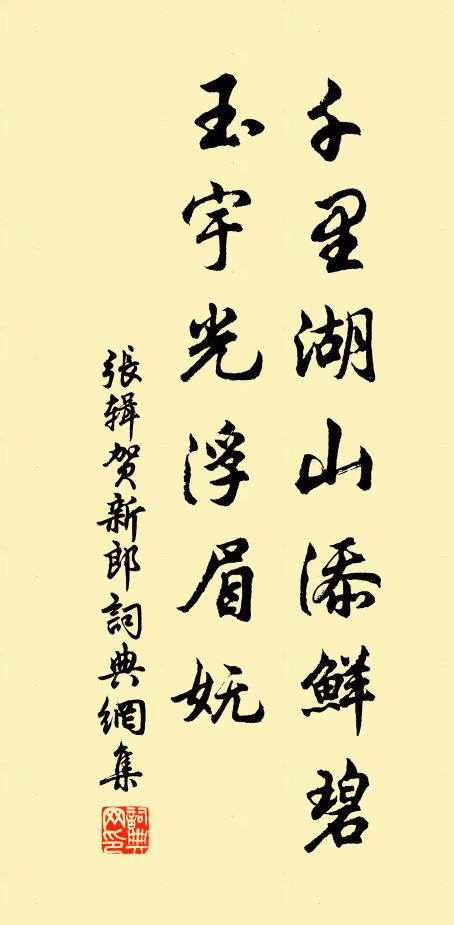 千里湖山添鮮碧
玉宇光浮眉妩
張辑贺新郎詞典網集
詞典网印